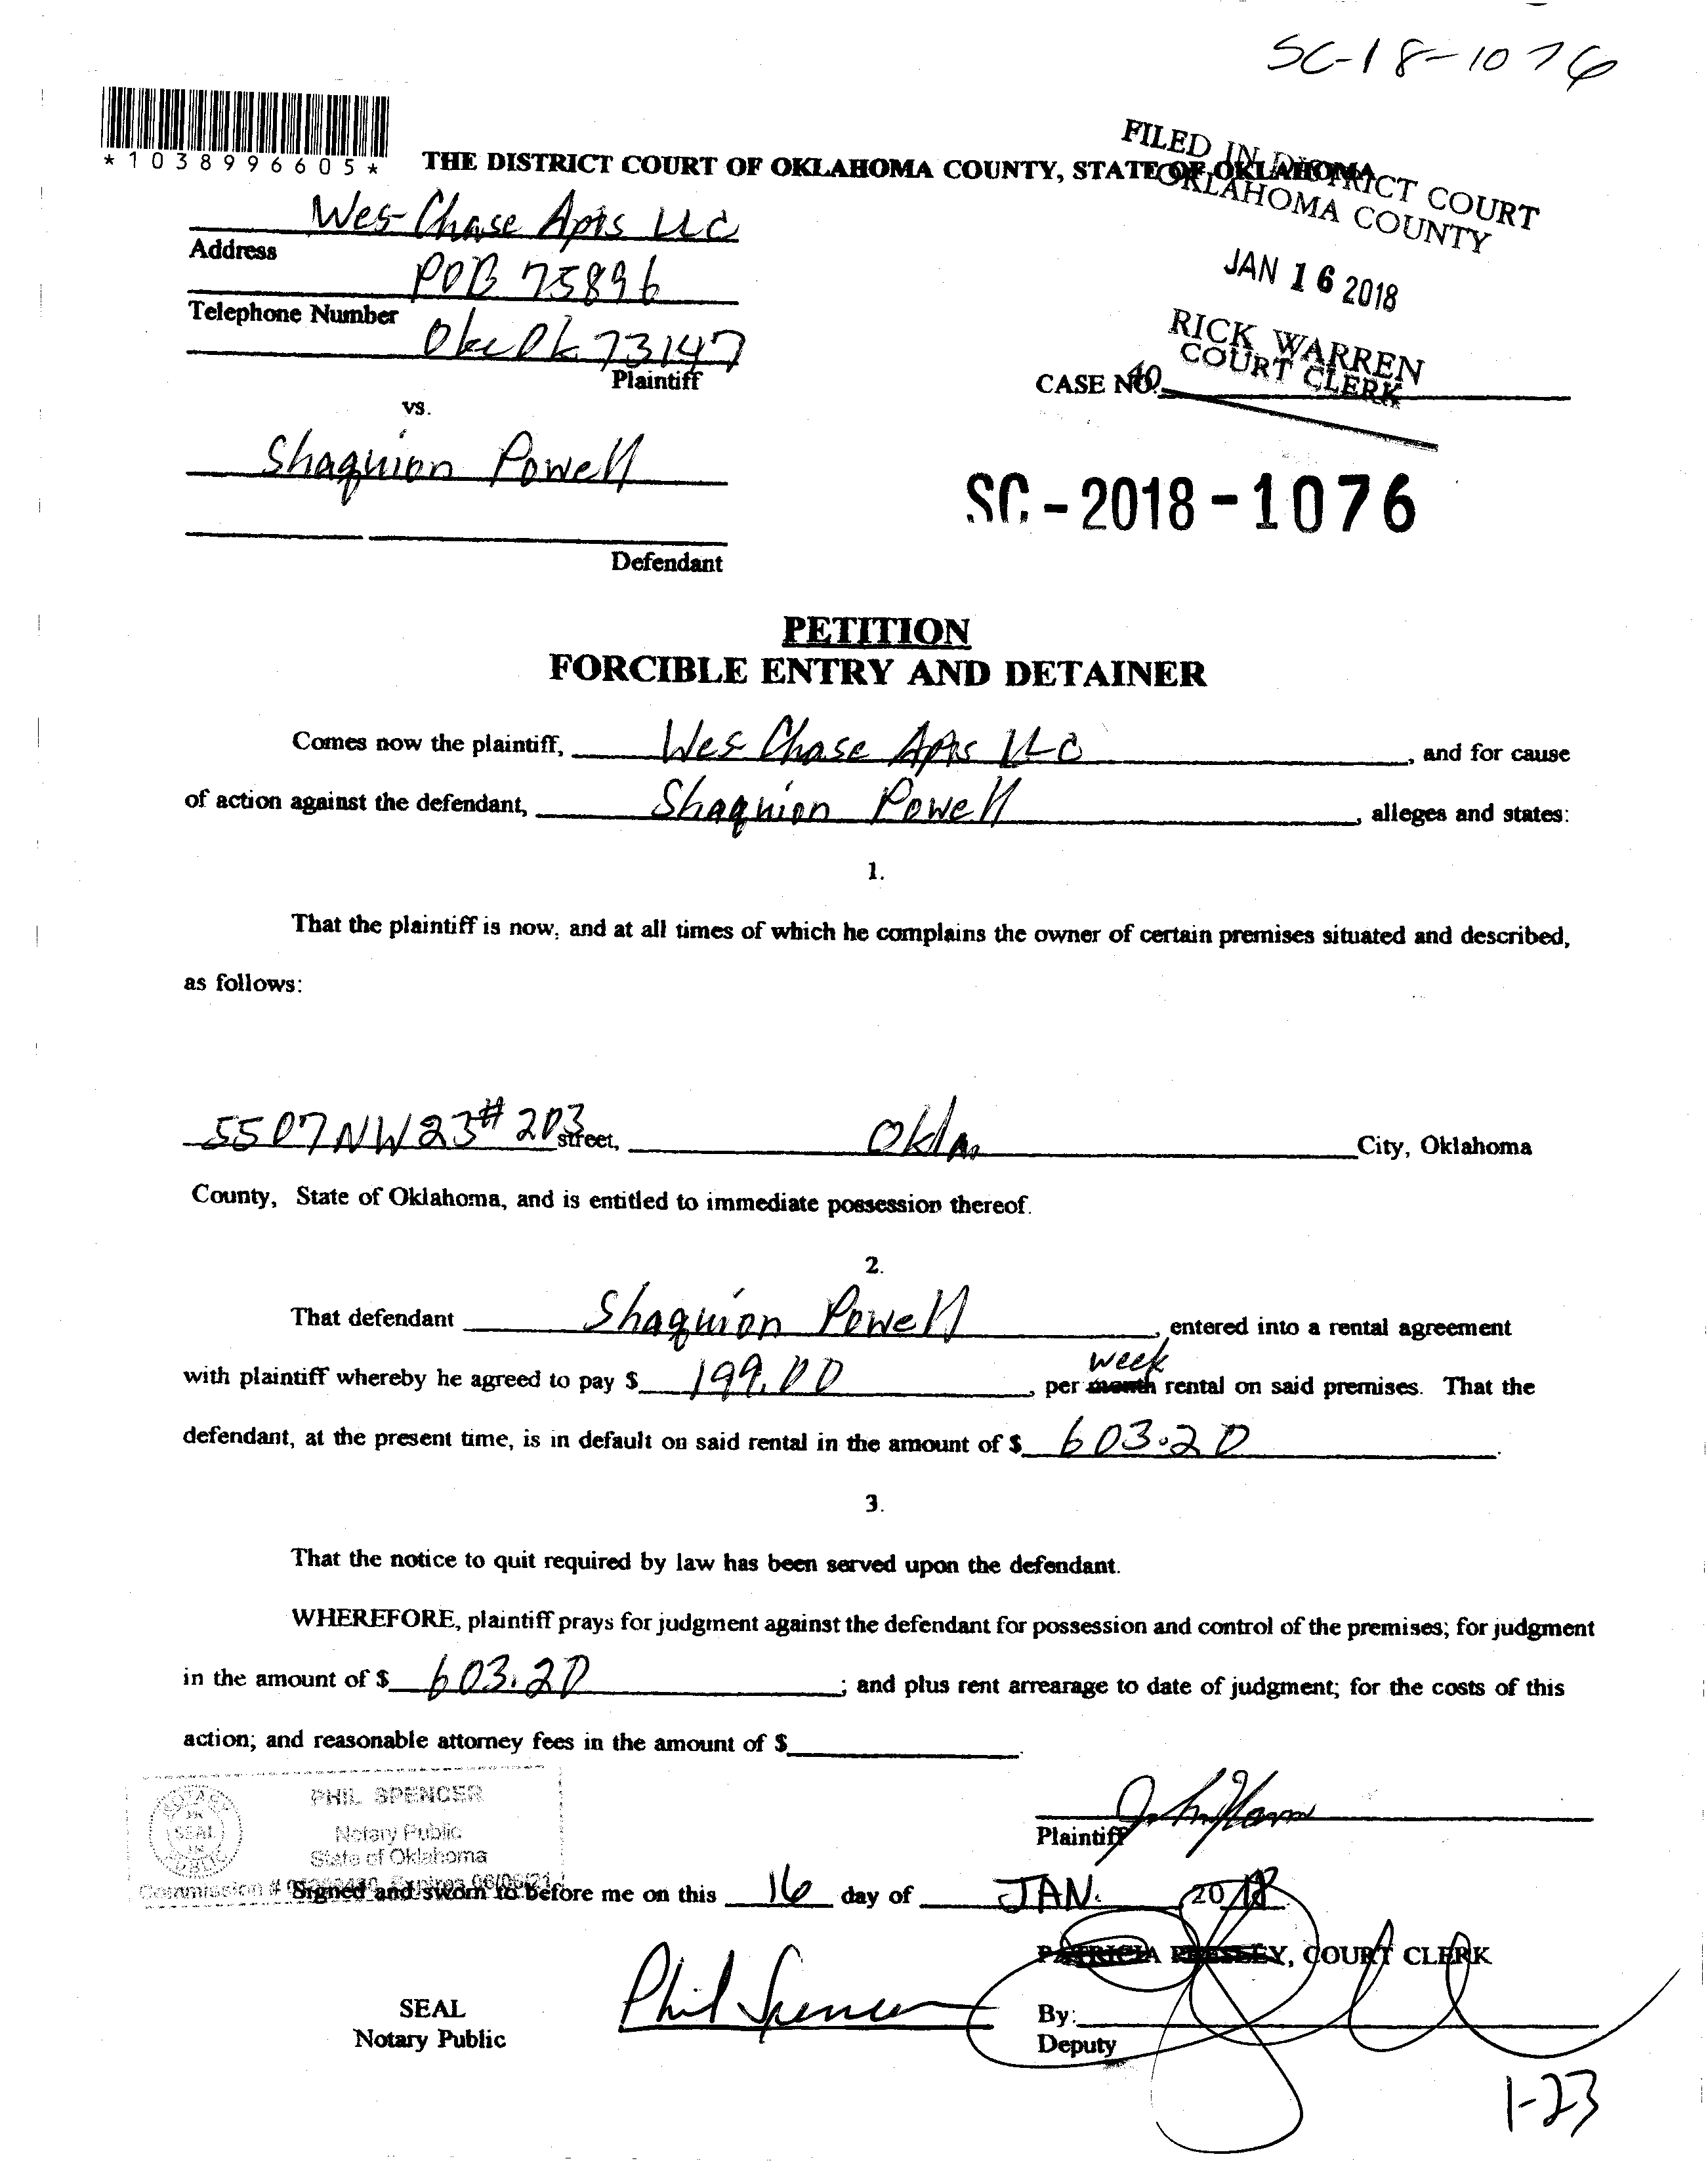 SC-18-1076
*1038996605*
THE DISTRICT COURT OF OKLAHOMA COUNTY, STATE OF OKLAHOMA
FILED IN DISTRICT COURT
OKLAHOMA COUNTY
JAN 16 2018
RICK WARREN
COURT CLERK
40
Wes Chase Apts LLC
Address
POB 75896
Telephone Number
Okc Ok 73147
Plaintiff
CASE NO.
vs.
Shaquion Powell
SC-2018-1076
Defendant
PETITION
FORCIBLE ENTRY AND DETAINER
Comes now the plaintiff, Wes Chase Apts LLC, and for cause
of action against the defendant, Shaquion Powell, alleges and states:
1.
That the plaintiff is now, and at all times of which he complains the owner of certain premises situated and described,
as follows:
5507 NW 23 # 203 street, Okla City, Oklahoma
County, State of Oklahoma, and is entitled to immediate possession thereof.
2.
That defendant Shaquion Powell, entered into a rental agreement
with plaintiff whereby he agreed to pay $ 199.00, per month week rental on said premises. That the
defendant, at the present time, is in default on said rental in the amount of $ 603.20.
3.
That the notice to quit required by law has been served upon the defendant.
WHEREFORE, plaintiff prays for judgment against the defendant for possession and control of the premises; for judgment
in the amount of $ 603.20; and plus rent arrearage to date of judgment; for the costs of this
action; and reasonable attorney fees in the amount of $
PHIL SPENCER
Notary Public
State of Oklahoma
Commission #
Plaintiff
Signed and sworn to before me on this 16 day of JAN. 2018
PATRICIA PRESLEY, COURT CLERK
SEAL
Notary Public
Phil Spencer
By:
Deputy
1-23